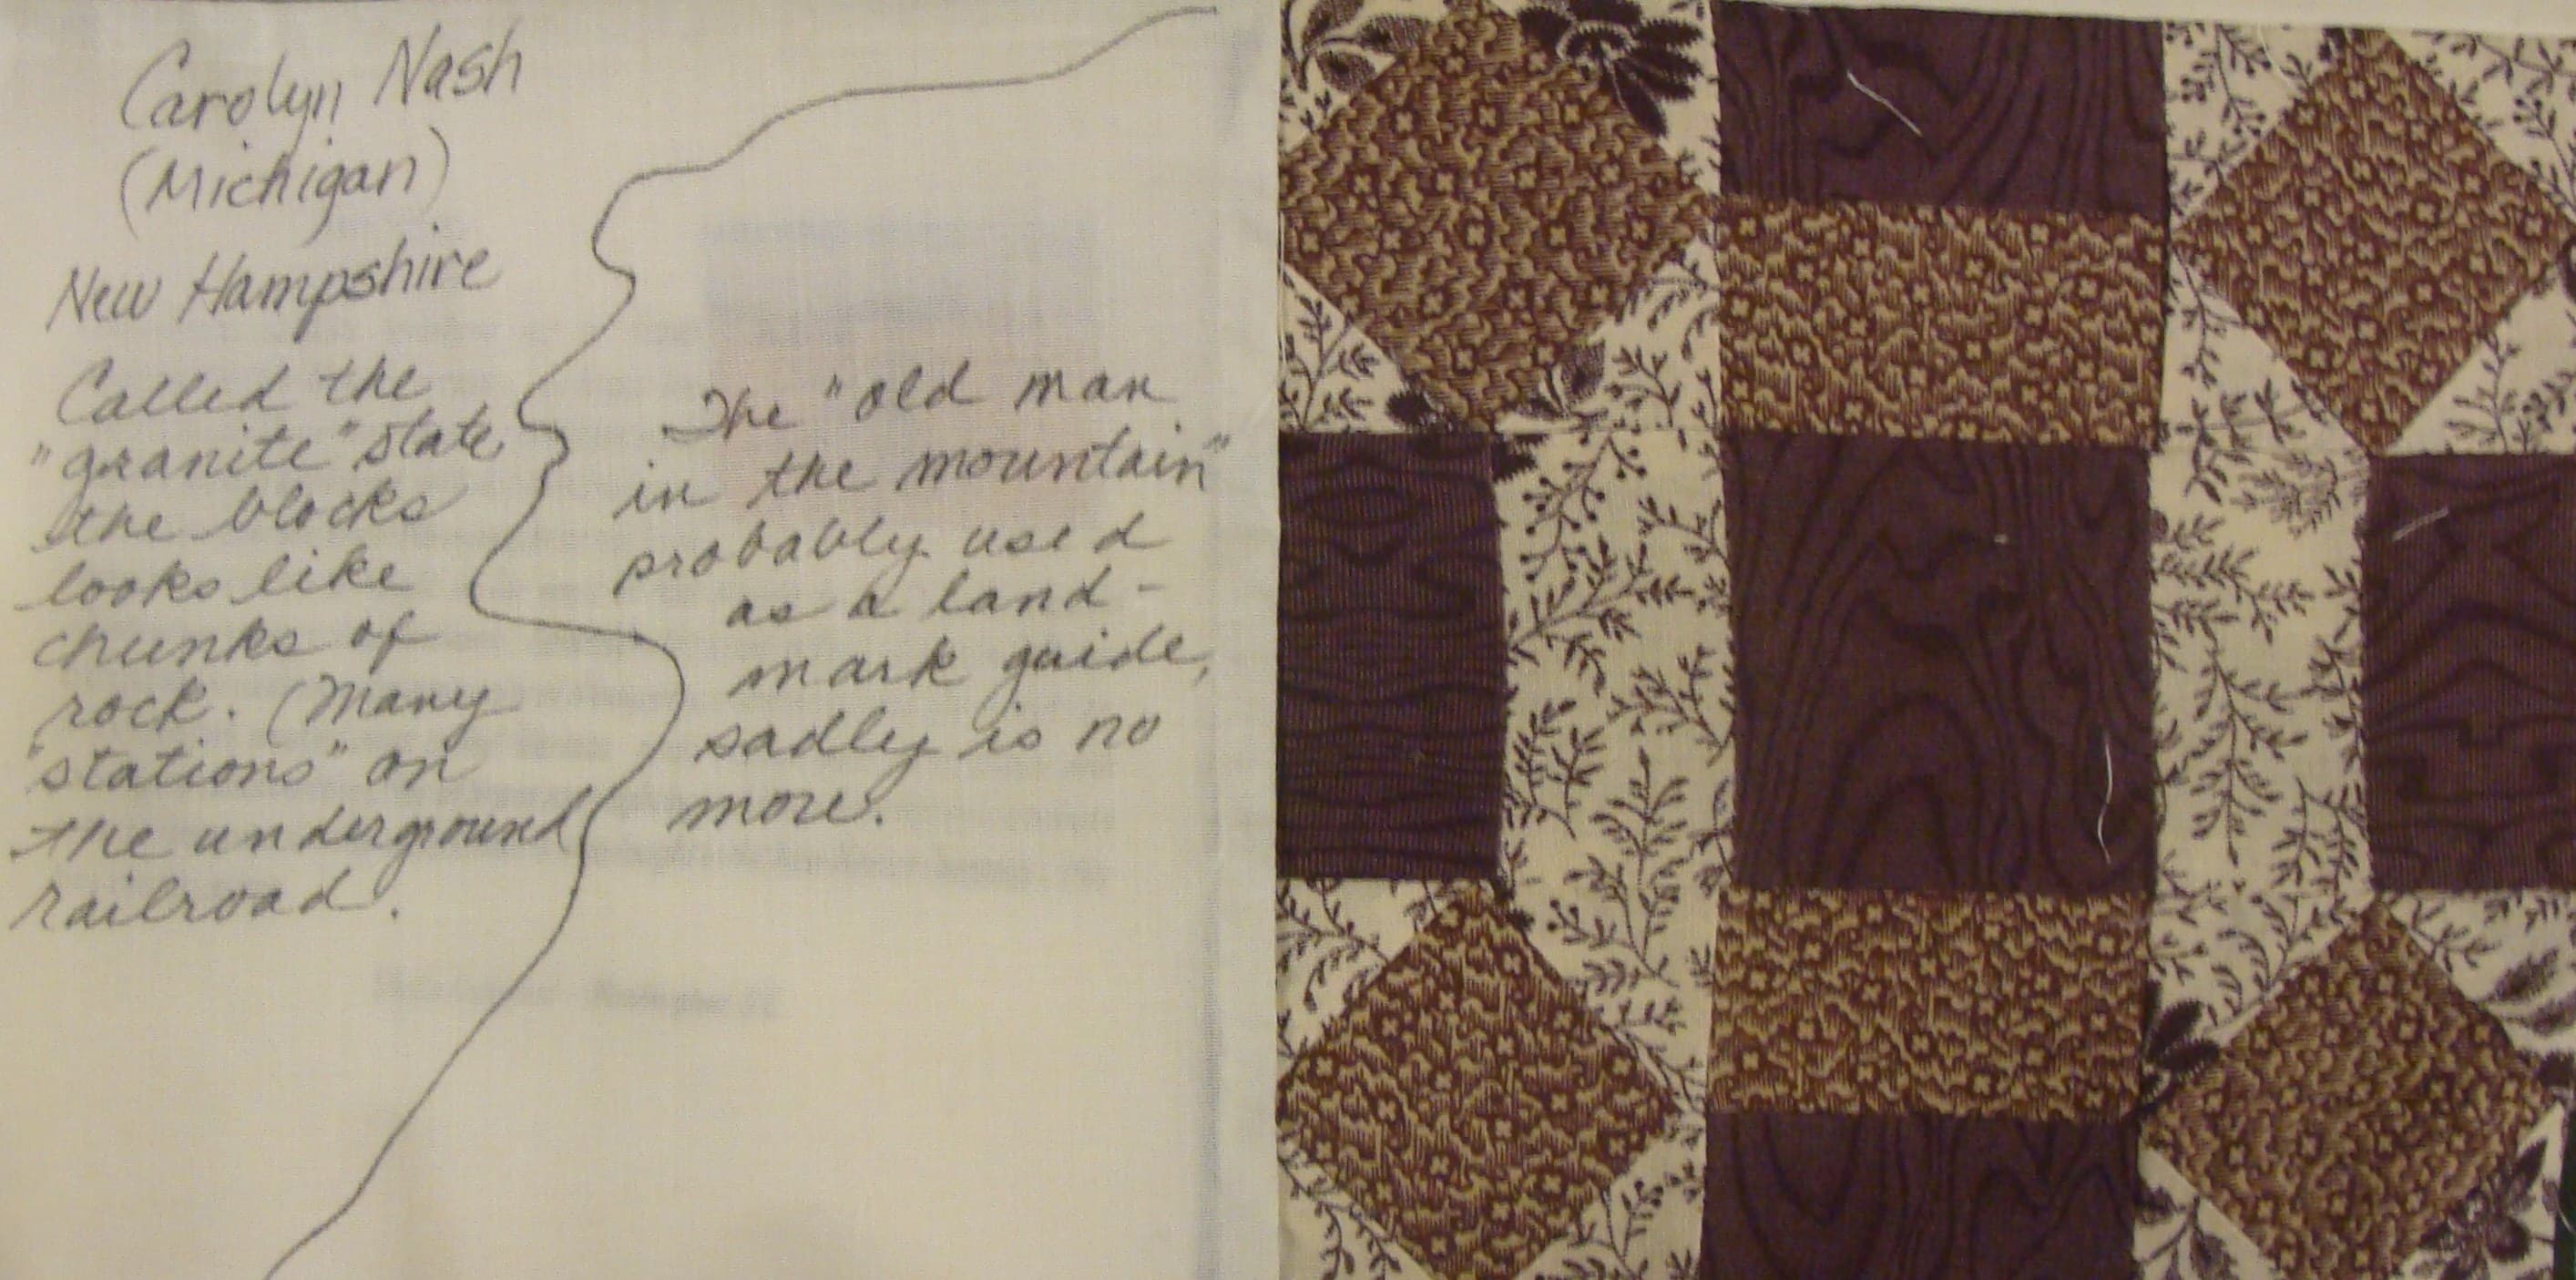 Carolyn Nash
(Michigan)
New Hampshire
Called the
"granite" state
the blocks
looks like
chunks of
rock. (Many
"stations" on
the underground
railroad.
The "old man
in the mountain"
probably used
as a land-
mark guide,
sadly is no
more.